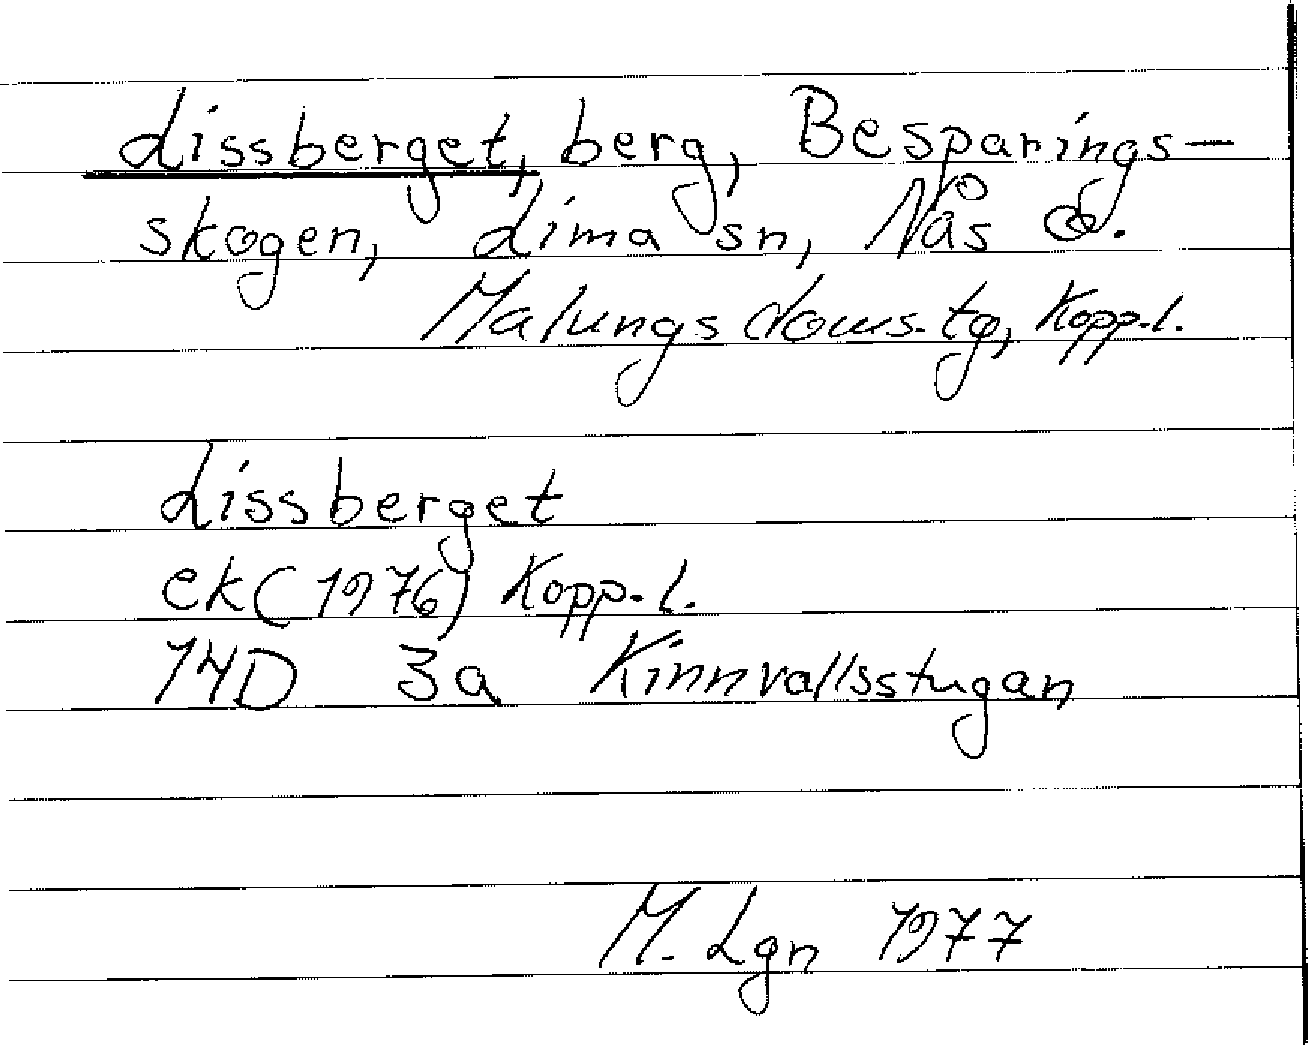 Lissberget, berg, Besparings-
skogen, Lima sn, Nås o.
Malungs doms. tg, Kopp.l.
Lissberget
ek (1976) Kopp. l.
14D 3a Kinnvallsstugan
M. Lgn 1977